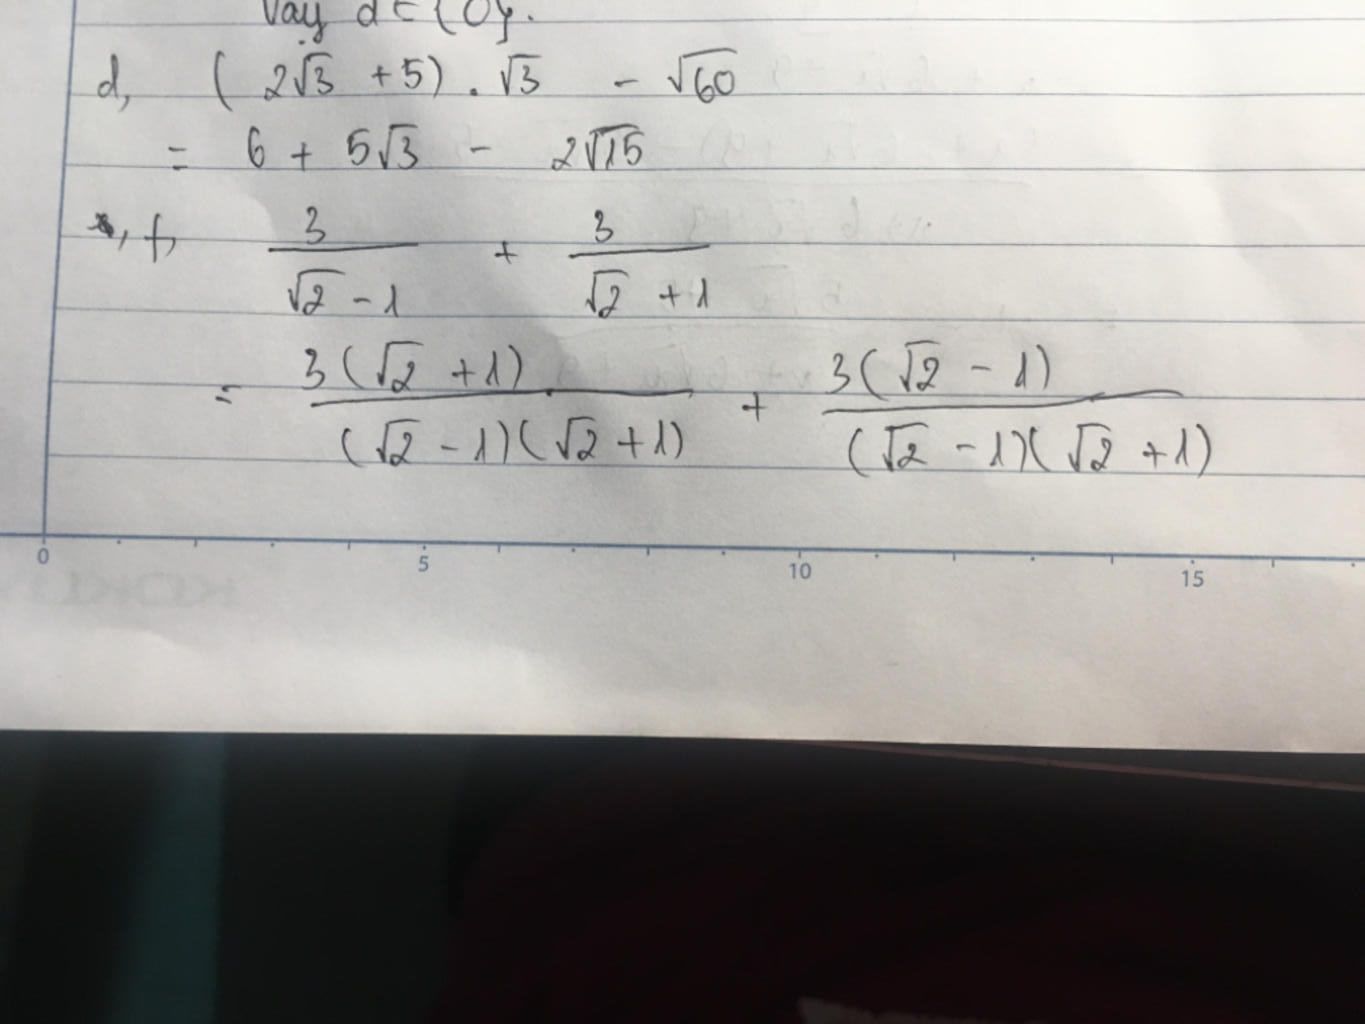 Vậy d ∈ {0}.
d, (2√3 + 5) . √3 - √60
= 6 + 5√3 - 2√15
, f, 3/(√2 - 1) + 3/(√2 + 1)
= 3(√2 + 1)/((√2 - 1)(√2 + 1)) + 3(√2 - 1)/((√2 - 1)(√2 + 1))
0 5 10 15